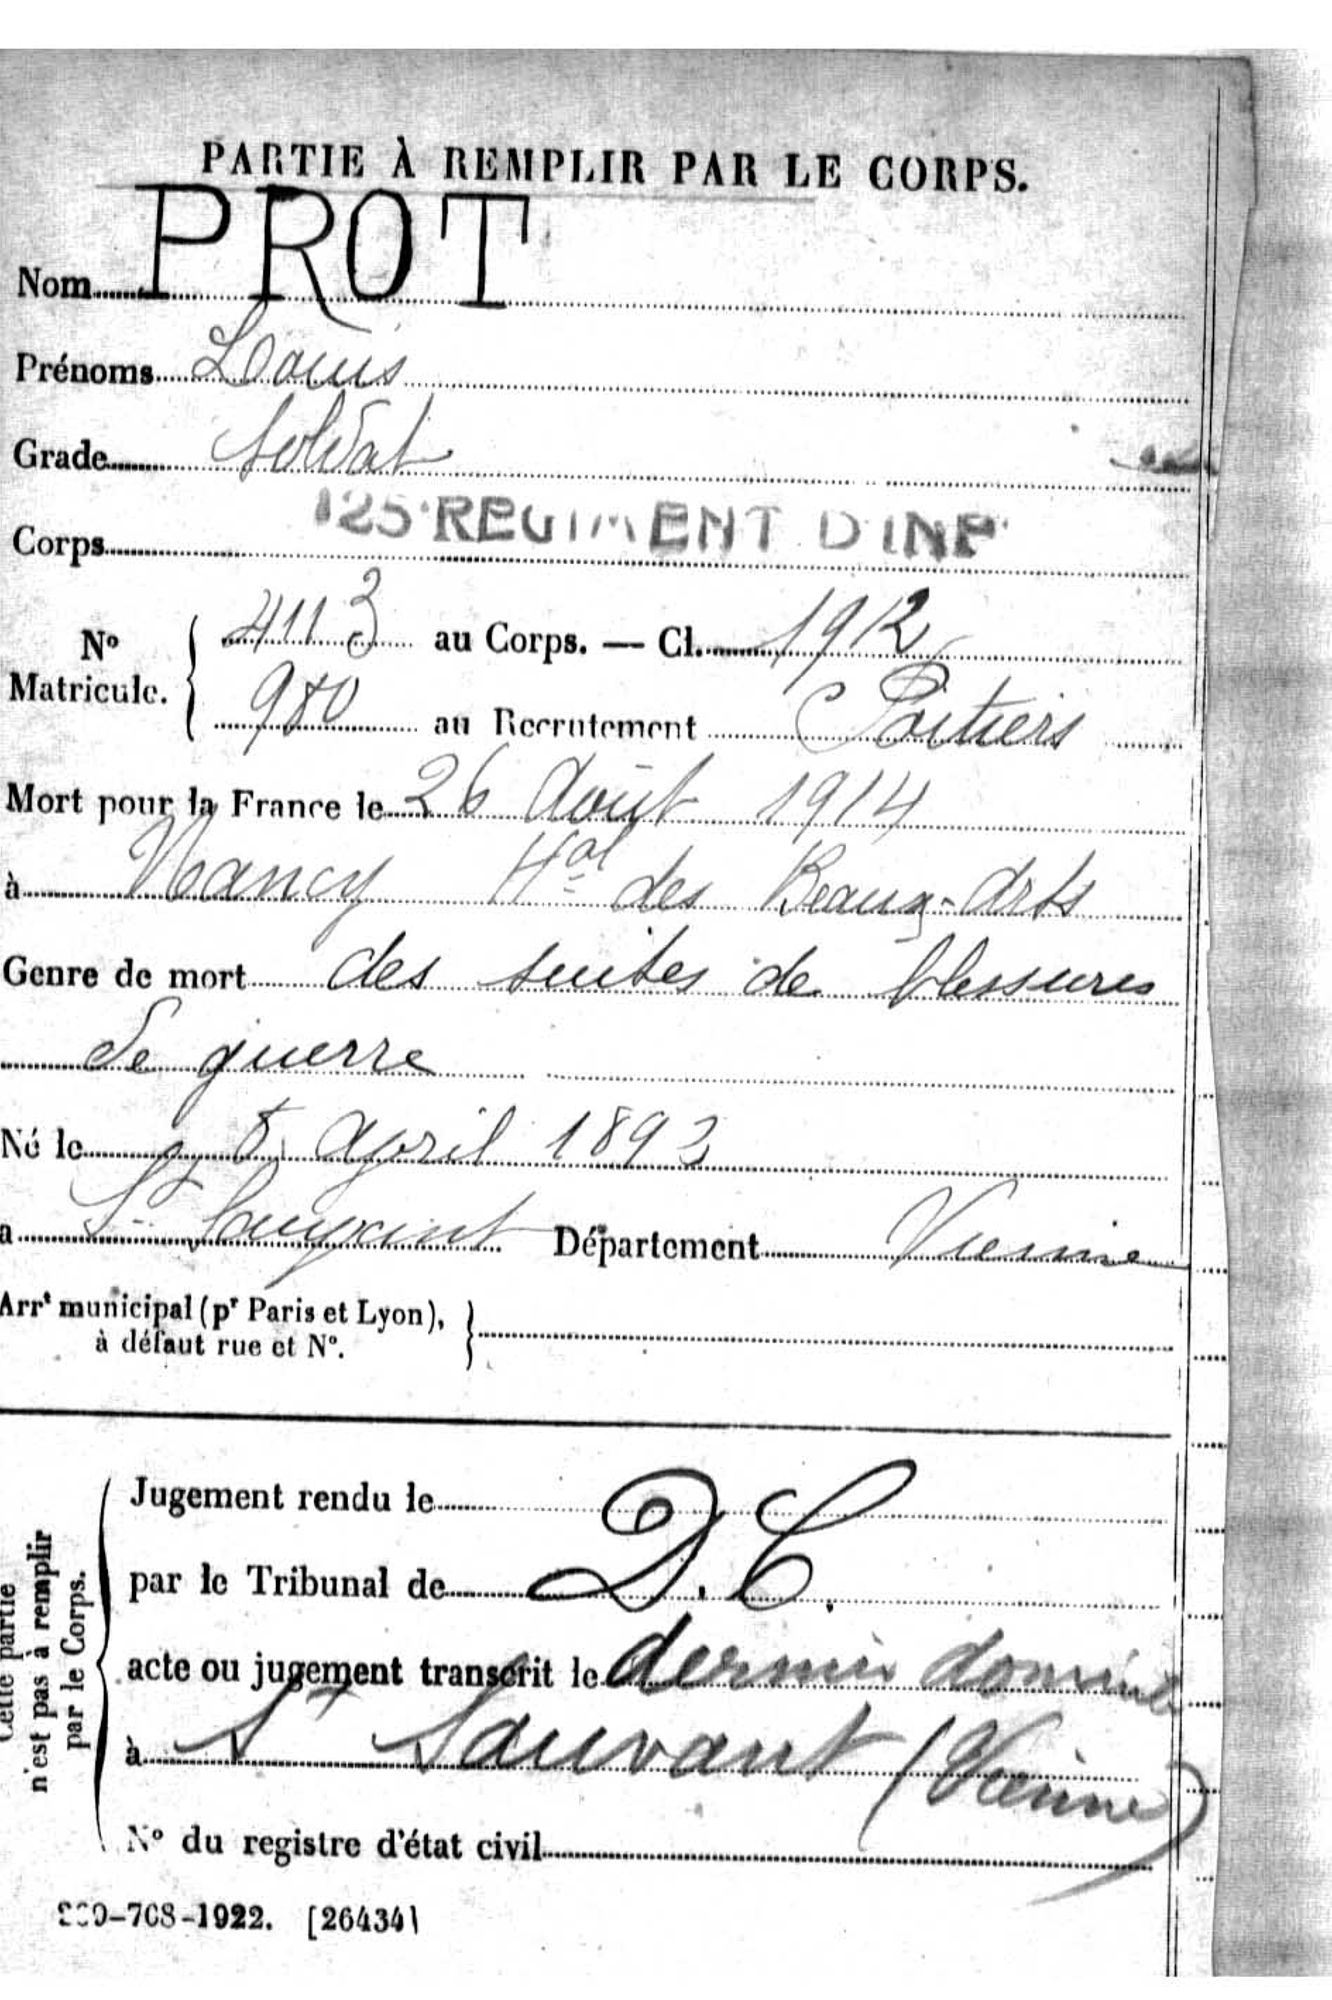 PARTIE À REMPLIR PAR LE CORPS.
Nom PROT
Prénoms Louis
Grade Soldat
Corps 125 REGIMENT D'INF
Nº Matricule. 4113 au Corps. — Cl. 1912
980 au Recrutement Poitiers
Mort pour la France le 26 Août 1914
à Nancy Hal des Beaux-Arts
Genre de mort des suites de blessures
de guerre
Né le 8 April 1893
a St Département Vienne
Arrt municipal (pr Paris et Lyon),
à défaut rue et Nº.
Cette partie
n'est pas à remplir
par le Corps.
Jugement rendu le
par le Tribunal de D.C.
acte ou jugement transcrit le dernier domicile
à St Sauvant (Vienne)
Nº du registre d'état civil
-708-1922. [26434]